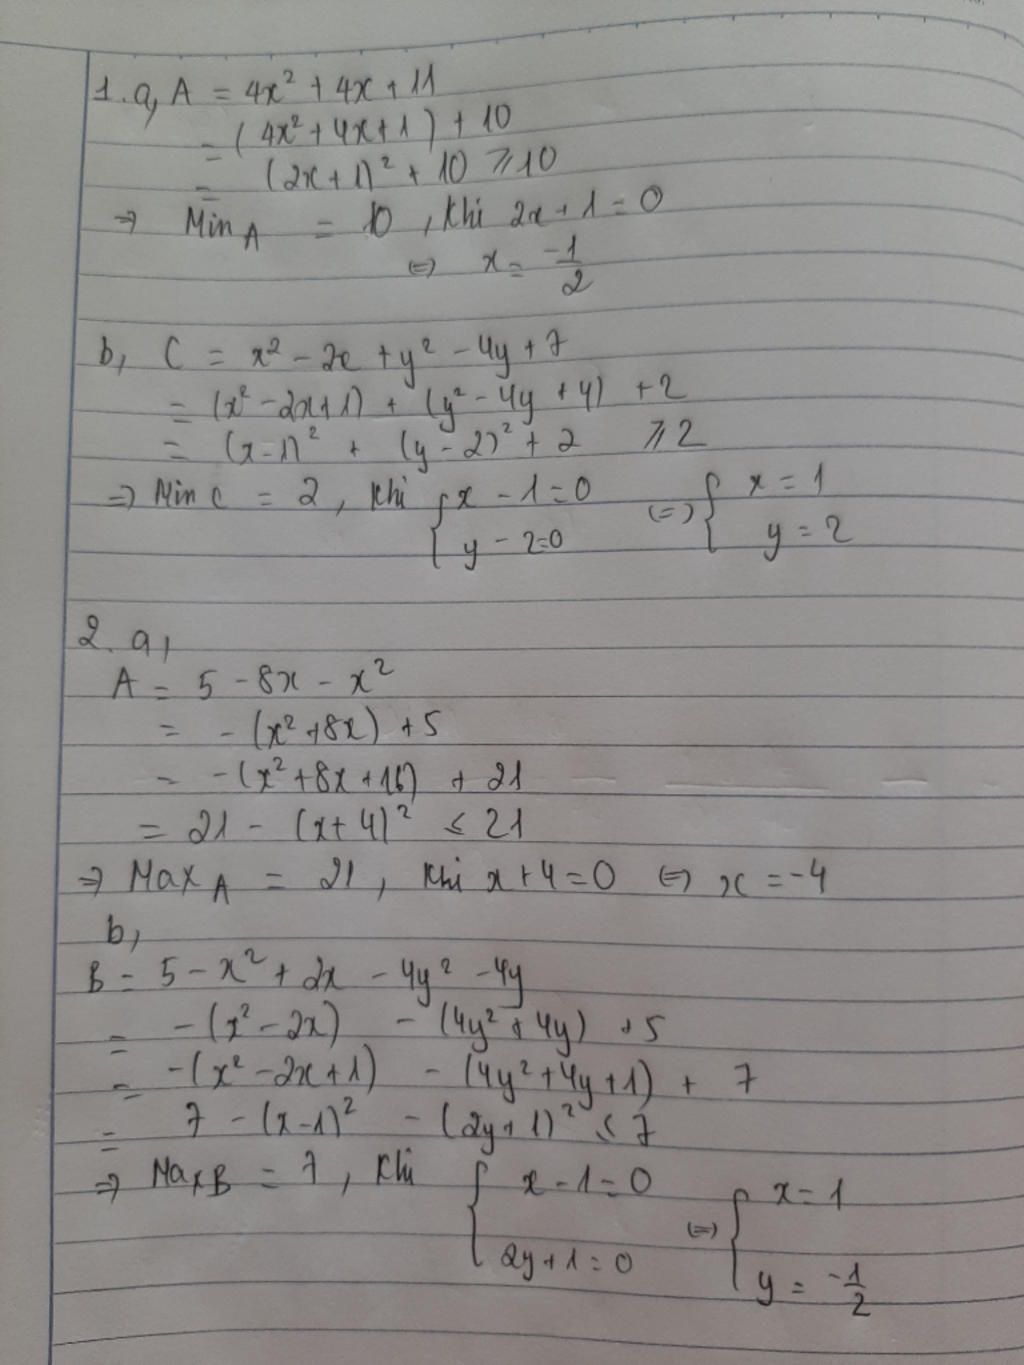 1. a, A = 4x² + 4x + 11
= (4x² + 4x + 1) + 10
= (2x + 1)² + 10 ⩾ 10
⇒ Min A = 10, khi 2x + 1 = 0
⇔ x = -1/2
b, C = x² - 2x + y² - 4y + 7
= (x² - 2x + 1) + (y² - 4y + 4) + 2
= (x - 1)² + (y - 2)² + 2 ⩾ 2
⇒ Min C = 2, khi { x - 1 = 0 ⇔ { x = 1
y - 2 = 0 y = 2
2. a,
A = 5 - 8x - x²
= - (x² + 8x) + 5
= - (x² + 8x + 16) + 21
= 21 - (x + 4)² ⩽ 21
⇒ Max A = 21, khi x + 4 = 0 ⇔ x = -4
b,
B = 5 - x² + 2x - 4y² - 4y
= - (x² - 2x) - (4y² + 4y) + 5
= - (x² - 2x + 1) - (4y² + 4y + 1) + 7
= 7 - (x - 1)² - (2y + 1)² ⩽ 7
⇒ Max B = 7, khi { x - 1 = 0 ⇔ { x = 1
2y + 1 = 0 y = -1/2